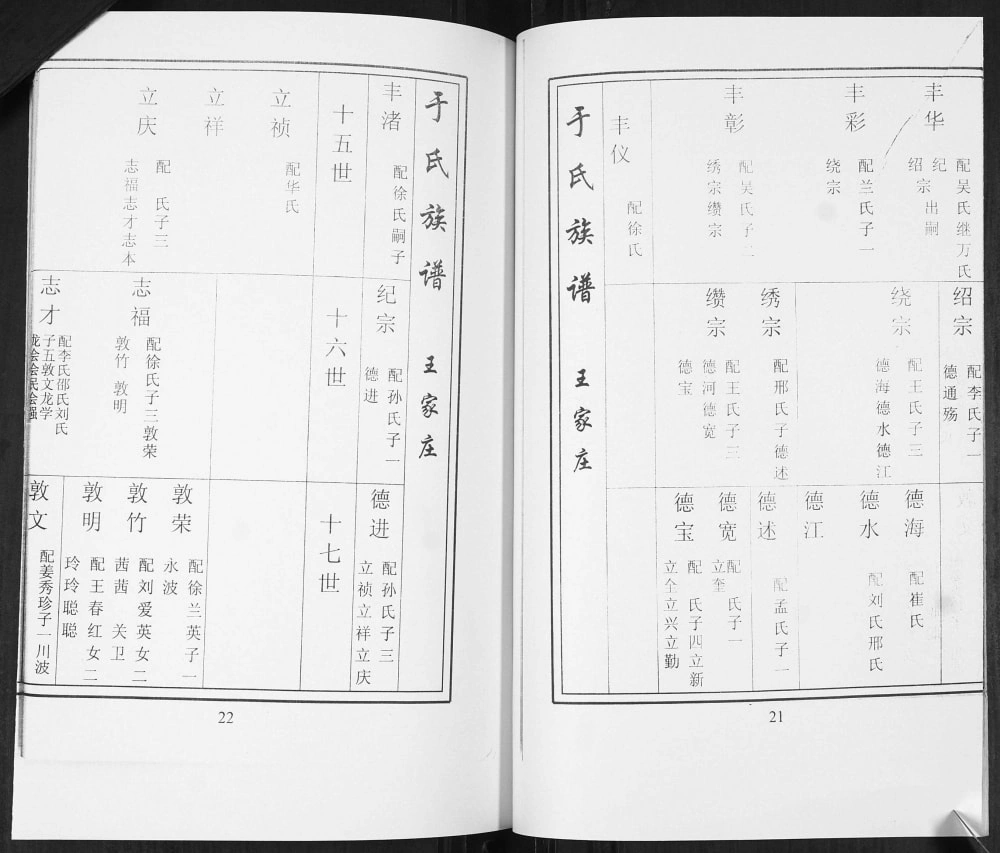 于氏族谱 王家庄
丰华
配吴氏继万氏
纪
绍宗出嗣
丰彩
配兰氏子一
绕宗
丰彰
配吴氏子二
绣宗缵宗
丰仪
配徐氏
绍宗
配李氏子一
德通殇
绕宗
配王氏子三
德海德水德江
绣宗
配邢氏子德述
缵宗
配王氏子三
德河德宽
德宝
德海
配崔氏
德水
配刘氏邢氏
德江
德述
配孟氏子一
德宽
配 氏子一
立奎
德宝
配 氏子四立新
立全立兴立勤
21
于氏族谱 王家庄
丰渚
配徐氏嗣子
纪宗
配孙氏子一
德进
德进
配孙氏子三
立祯立祥立庆
十五世
十六世
十七世
立祯
配华氏
立祥
立庆
配 氏子三
志福志才志本
志福
配徐氏子三敦荣
敦竹 敦明
志才
配李氏邵氏刘氏
子五敦文龙学
龙会会民会强
敦荣
配徐兰英子一
永波
敦竹
配刘爱英女二
茜茜 关卫
敦明
配王春红女二
玲玲聪聪
敦文
配姜秀珍子一川波
22